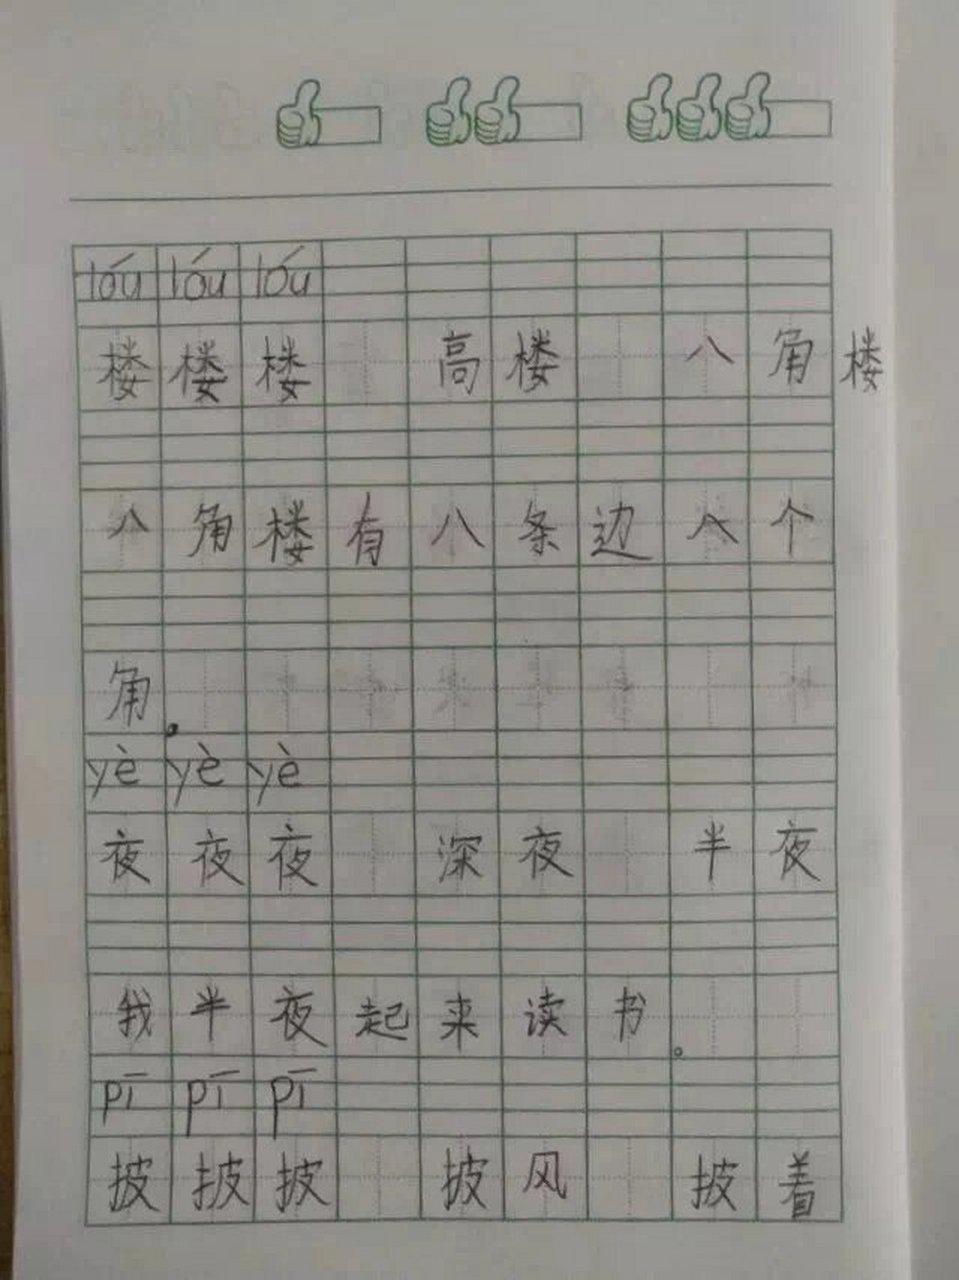 lóu lóu lóu
楼楼楼 高楼 八角楼
八角楼有八条边八个
角。
yè yè yè
夜夜夜 深夜 半夜
我半夜起来读书。
pī pī pī
披披披 披风 披着